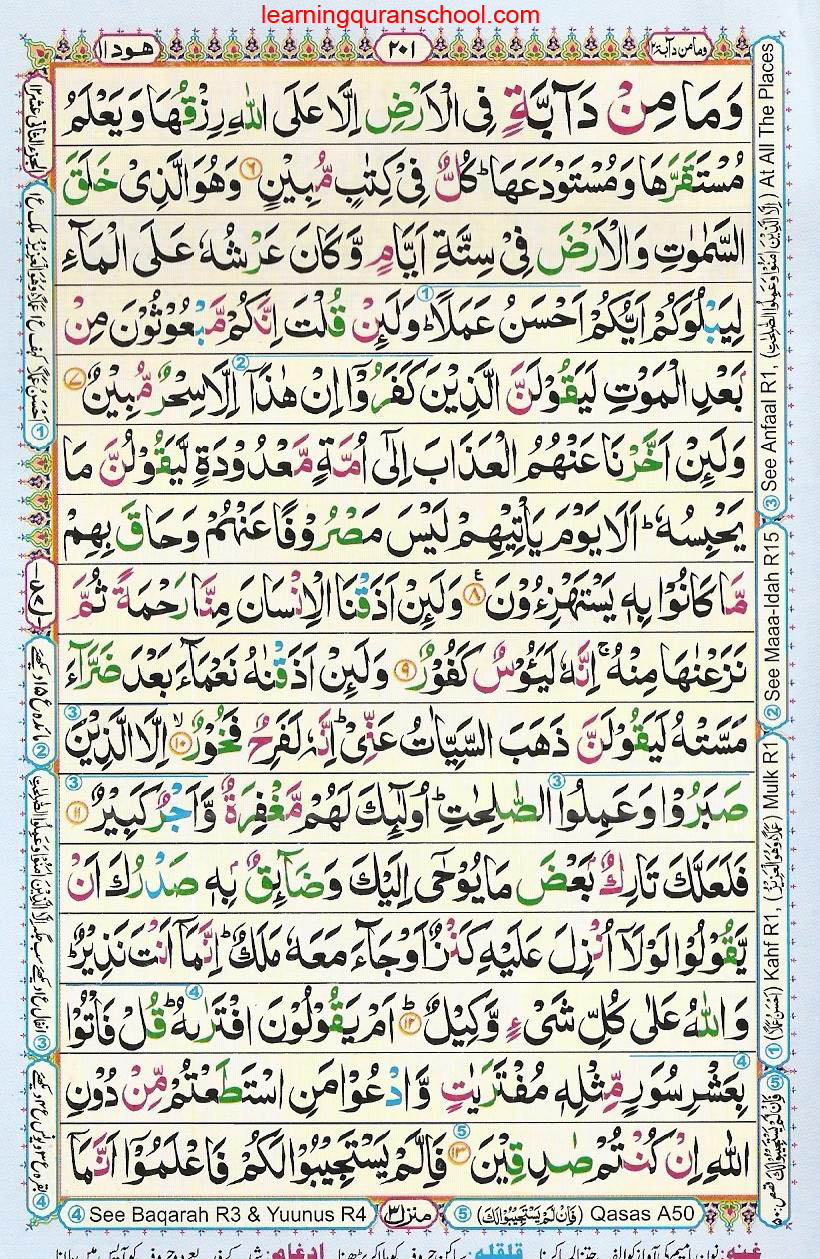 learningquranschool.com
وما من دآبة ١٢
٢٠١
هود ١١
وَمَا مِنْ دَآبَّةٍ فِي الْاَرْضِ اِلَّا عَلَى اللّٰهِ رِزْقُهَا وَيَعْلَمُ
مُسْتَقَرَّهَا وَمُسْتَوْدَعَهَا ؕ كُلٌّ فِيْ كِتٰبٍ مُّبِيْنٍ ۶ وَهُوَ الَّذِيْ خَلَقَ
السَّمٰوٰتِ وَالْاَرْضَ فِيْ سِتَّةِ اَيَّامٍ وَّكَانَ عَرْشُهٗ عَلَى الْمَآءِ
لِيَبْلُوَكُمْ اَيُّكُمْ اَحْسَنُ عَمَلًا ؕ وَلَئِنْ قُلْتَ اِنَّكُمْ مَّبْعُوْثُوْنَ مِنْۢ
بَعْدِ الْمَوْتِ لَيَقُوْلَنَّ الَّذِيْنَ كَفَرُوْۤا اِنْ هٰذَاۤ اِلَّا سِحْرٌ مُّبِيْنٌ ۷
وَلَئِنْ اَخَّرْنَا عَنْهُمُ الْعَذَابَ اِلٰۤى اُمَّةٍ مَّعْدُوْدَةٍ لَّيَقُوْلُنَّ مَا
يَحْبِسُهٗ ؕ اَلَا يَوْمَ يَاْتِيْهِمْ لَيْسَ مَصْرُوْفًا عَنْهُمْ وَحَاقَ بِهِمْ
مَّا كَانُوْا بِهٖ يَسْتَهْزِءُوْنَ ۸ وَلَئِنْ اَذَقْنَا الْاِنْسَانَ مِنَّا رَحْمَةً ثُمَّ
نَزَعْنٰهَا مِنْهُ ۚ اِنَّهٗ لَيَـُٔوْسٌ كَفُوْرٌ ۹ وَلَئِنْ اَذَقْنٰهُ نَعْمَآءَ بَعْدَ ضَرَّآءَ
مَسَّتْهُ لَيَقُوْلَنَّ ذَهَبَ السَّيِّاٰتُ عَنِّيْ ؕ اِنَّهٗ لَفَرِحٌ فَخُوْرٌ ۱۰ اِلَّا الَّذِيْنَ
صَبَرُوْا وَعَمِلُوا الصّٰلِحٰتِ ؕ اُولٰٓئِكَ لَهُمْ مَّغْفِرَةٌ وَّاَجْرٌ كَبِيْرٌ ۱۱
فَلَعَلَّكَ تَارِكٌۢ بَعْضَ مَا يُوْحٰۤى اِلَيْكَ وَضَآئِقٌۢ بِهٖ صَدْرُكَ اَنْ
يَّقُوْلُوْا لَوْلَاۤ اُنْزِلَ عَلَيْهِ كَنْزٌ اَوْ جَآءَ مَعَهٗ مَلَكٌ ؕ اِنَّمَاۤ اَنْتَ نَذِيْرٌ ؕ
وَاللّٰهُ عَلٰى كُلِّ شَيْءٍ وَّكِيْلٌ ۱۲ اَمْ يَقُوْلُوْنَ افْتَرٰىهُ ؕ قُلْ فَاْتُوْا
بِعَشْرِ سُوَرٍ مِّثْلِهٖ مُفْتَرَيٰتٍ وَّادْعُوْا مَنِ اسْتَطَعْتُمْ مِّنْ دُوْنِ
اللّٰهِ اِنْ كُنْتُمْ صٰدِقِيْنَ ۱۳ فَاِلَّمْ يَسْتَجِيْبُوْا لَكُمْ فَاعْلَمُوْۤا اَنَّمَاۤ
④ See Baqarah R3 & Yuunus R4
منزل ٣
⑤ (فَاِنْ لَّمْ يَسْتَجِيْبُوْا لَكَ) Qasas A50
① (اَحْسَنُ عَمَلًا) Kahf R1, (عَمَلًا وَهُوَ الْعَزِيْزُ) Mulk R1
② See Maaa-Idah R15
③ See Anfaal R1, (اِلَّا الَّذِيْنَ اٰمَنُوْا وَعَمِلُوا الصّٰلِحٰتِ) At All The Places